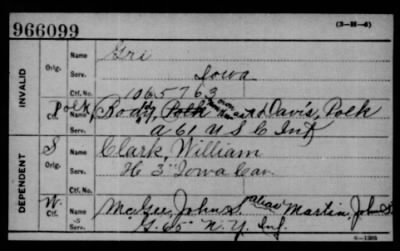 966099
(3-H-6)
INVALID
Orig.
Name
Gri
Serv.
Iowa
Ctf. No.
1065763
Polk, Body, Polk Davis, Polk
Ctf.
Name
Serv.
A 61 U S C Inf
DEPENDENT
S
Orig.
Name
Clark, William
Serv.
H 3" Iowa Cav.
W.
Ctf.
Name
McGee, John S. alias Martin, John S
Serv.
G. 65" N.Y. Inf.